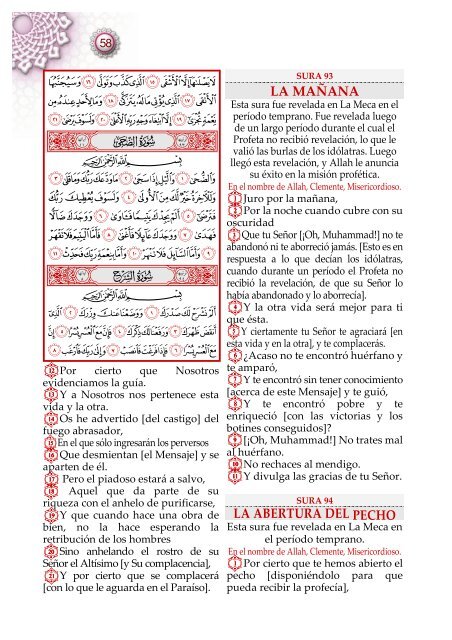 58
لَا يَصْلَىٰهَآ إِلَّا ٱلْأَشْقَى ١٥ ٱلَّذِى كَذَّبَ وَتَوَلَّىٰ ١٦ وَسَيُجَنَّبُهَا
ٱلْأَتْقَى ١٧ ٱلَّذِى يُؤْتِى مَالَهُۥ يَتَزَكَّىٰ ١٨ وَمَا لِأَحَدٍ عِندَهُۥ مِن
نِّعْمَةٍ تُجْزَىٰٓ ١٩ إِلَّا ٱبْتِغَآءَ وَجْهِ رَبِّهِ ٱلْأَعْلَىٰ ٢٠ وَلَسَوْفَ يَرْضَىٰ ٢١
سُورَةُ الضُّحَىٰ
بِسْمِ ٱللَّهِ ٱلرَّحْمَٰنِ ٱلرَّحِيمِ
وَٱلضُّحَىٰ ١ وَٱلَّيْلِ إِذَا سَجَىٰ ٢ مَا وَدَّعَكَ رَبُّكَ وَمَا قَلَىٰ ٣
وَلَلْءَاخِرَةُ خَيْرٌ لَّكَ مِنَ ٱلْأُولَىٰ ٤ وَلَسَوْفَ يُعْطِيكَ رَبُّكَ
فَتَرْضَىٰٓ ٥ أَلَمْ يَجِدْكَ يَتِيمًا فَـَٔاوَىٰ ٦ وَوَجَدَكَ ضَآلًّا
فَهَدَىٰ ٧ وَوَجَدَكَ عَآئِلًا فَأَغْنَىٰ ٨ فَأَمَّا ٱلْيَتِيمَ فَلَا تَقْهَرْ
٩ وَأَمَّا ٱلسَّآئِلَ فَلَا تَنْهَرْ ١٠ وَأَمَّا بِنِعْمَةِ رَبِّكَ فَحَدِّثْ ١١
سُورَةُ الشَّرْحِ
بِسْمِ ٱللَّهِ ٱلرَّحْمَٰنِ ٱلرَّحِيمِ
أَلَمْ نَشْرَحْ لَكَ صَدْرَكَ ١ وَوَضَعْنَا عَنكَ وِزْرَكَ ٢ ٱلَّذِىٓ
أَنقَضَ ظَهْرَكَ ٣ وَرَفَعْنَا لَكَ ذِكْرَكَ ٤ فَإِنَّ مَعَ ٱلْعُسْرِ يُسْرًا ٥ إِنَّ
مَعَ ٱلْعُسْرِ يُسْرًا ٦ فَإِذَا فَرَغْتَ فَٱنصَبْ ٧ وَإِلَىٰ رَبِّكَ فَٱرْغَب ٨
12 Por cierto que Nosotros
evidenciamos la guía.
13 Y a Nosotros nos pertenece esta
vida y la otra.
14 Os he advertido [del castigo] del
fuego abrasador,
15 En el que sólo ingresarán los perversos
16 Que desmientan [el Mensaje] y se
aparten de él.
17 Pero el piadoso estará a salvo,
18 Aquel que da parte de su
riqueza con el anhelo de purificarse,
19 Y que cuando hace una obra de
bien, no la hace esperando la
retribución de los hombres
20 Sino anhelando el rostro de su
Señor el Altísimo [y Su complacencia],
21 Y por cierto que se complacerá
[con lo que le aguarda en el Paraíso].
SURA 93
LA MAÑANA
Esta sura fue revelada en La Meca en el
período temprano. Fue revelada luego
de un largo período durante el cual el
Profeta no recibió revelación, lo que le
valió las burlas de los idólatras. Luego
llegó esta revelación, y Allah le anuncia
su éxito en la misión profética.
En el nombre de Allah, Clemente, Misericordioso.
1 Juro por la mañana,
2 Por la noche cuando cubre con su
oscuridad
3 Que tu Señor [¡Oh, Muhammad!] no te
abandonó ni te aborreció jamás. [Esto es en
respuesta a lo que decían los idólatras,
cuando durante un período el Profeta no
recibió la revelación, de que su Señor lo
había abandonado y lo aborrecía].
4 Y la otra vida será mejor para ti
que ésta.
5 Y ciertamente tu Señor te agraciará [en
esta vida y en la otra], y te complacerás.
6 ¿Acaso no te encontró huérfano y
te amparó,
7 Y te encontró sin tener conocimiento
[acerca de este Mensaje] y te guió,
8 Y te encontró pobre y te
enriqueció [con las victorias y los
botines conseguidos]?
9 [¡Oh, Muhammad!] No trates mal
al huérfano.
10 No rechaces al mendigo.
11 Y divulga las gracias de tu Señor.
SURA 94
LA ABERTURA DEL PECHO
Esta sura fue revelada en La Meca en
el período temprano.
En el nombre de Allah, Clemente, Misericordioso.
1 Por cierto que te hemos abierto el
pecho [disponiéndolo para que
pueda recibir la profecía],